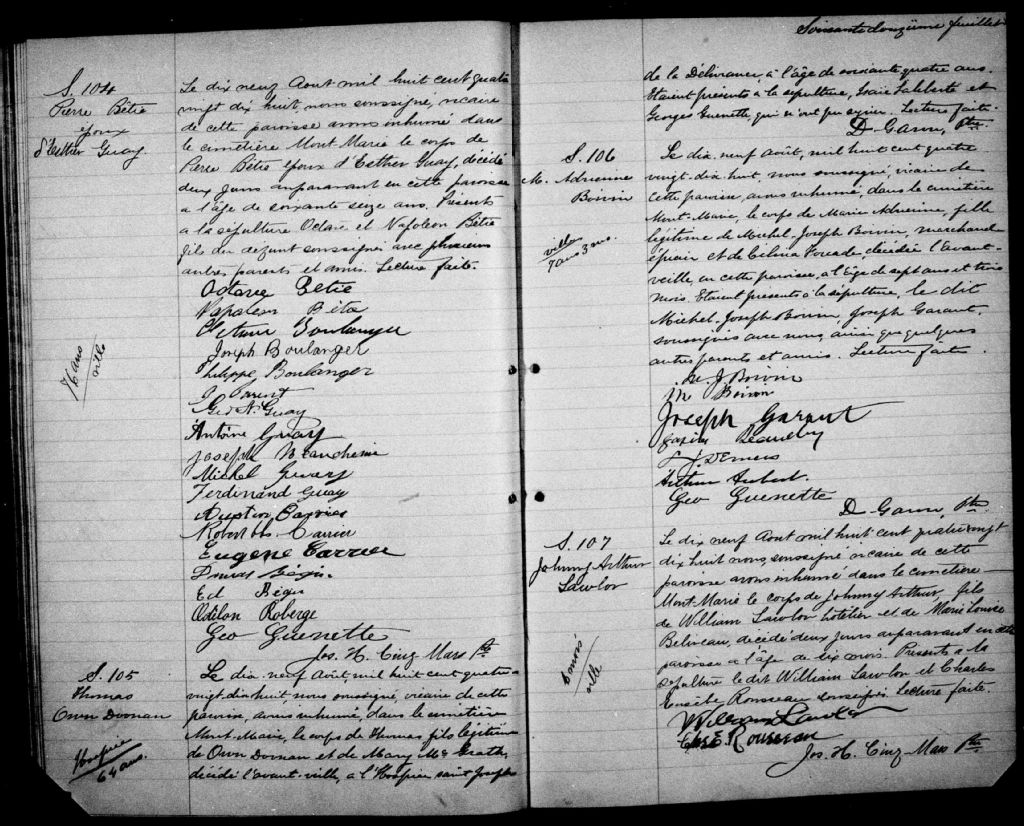 S. 104
Pierre Bétie
époux
d'Esther Guay
76 ans
ville
Le dix neuf Aout mil huit cent quatre
vingt dix huit, nous soussigné, vicaire
de cette paroisse avons inhumé dans
le cimetière Mont Marie le corps de
Pierre Bétie époux d'Esther Guay, décédé
deux jours auparavant en cette paroisse
a l'âge de soixante seize ans. Présents
a la sépulture Octave et Napoleon Bétie
fils du défunt soussignés avec plusieurs
autres parents et amis. Lecture faite.
Octave Bétie
Napoleon Bétie
Boulanger
Joseph Boulanger
Philippe Boulanger
J. Parent
Geo N. Guay
Antoine Guay
Joseph Beauchemin
Michel Guay
Ferdinand Guay
Carrier
Robert Carrier
Eugène Carrier
Bégin
Ed Bégin
Odilon Roberge
Geo Guenette
Jos. H. Cinq Mars Ptre
S. 105
Thomas
Own Doonan
Hospice
64 ans.
Le dix-neuf Août, mil huit cent quatre-
vingt-dix huit, nous soussigné, vicaire de cette
paroisse, avons inhumé, dans le cimetière
Mont-Marie, le corps de Thomas fils légitime
de Own Doonan et de Mary Mc Grath,
décédé l'avant-veille, a l'Hospice saint Joseph
Soixante douzième feuillet
de la Délivrance, à l'âge de soixante quatre ans.
Etaient présents à la sépulture, Isaïe Laliberté et
Georges Guenette, qui n'ont pu signer. Lecture faite.
D. Garon, Ptre.
S. 106
M. Adrienne
Boivin
ville
7 ans 3 mois.
Le dix-neuf août, mil huit cent quatre
vingt-dix huit, nous soussigné, vicaire de
cette paroisse, avons inhumé, dans le cimetière
Mont-Marie, le corps de Marie Adrienne, fille
légitime de Michel-Joseph Boivin, marchand
épicier et de Célina décédée l'avant-
veille, en cette paroisse, à l'âge de sept ans et trois
mois. Etaient présents à la sépulture, le dit
Michel-Joseph Boivin, Joseph Garant,
soussignés avec nous, ainsi que quelques
autres parents et amis. Lecture faite.
M. J. Boivin
M Boivin
Joseph Garant
Beaudry
J. Demers
Arthur Aubert
Geo Guenette
D. Garon, Ptre
S. 107
Johnny Arthur
Lawlor
6 mois
ville
Le dix neuf Aout mil huit cent quatre vingt
dix huit nous soussigné vicaire de cette
paroisse avons inhumé dans le cimetière
Mont-Marie le corps de Johnny Arthur, fils
de William Lawlor hotelier et de Marie Louise
Belneau, décédé deux jours auparavant en cette
paroisse à l'âge de six mois. Présents a la
sépulture le dit William Lawlor et Charles
Eusèbe Rousseau soussignés Lecture faite.
William Lawlor
Chs E. Rousseau
Jos. H. Cinq Mars Ptre